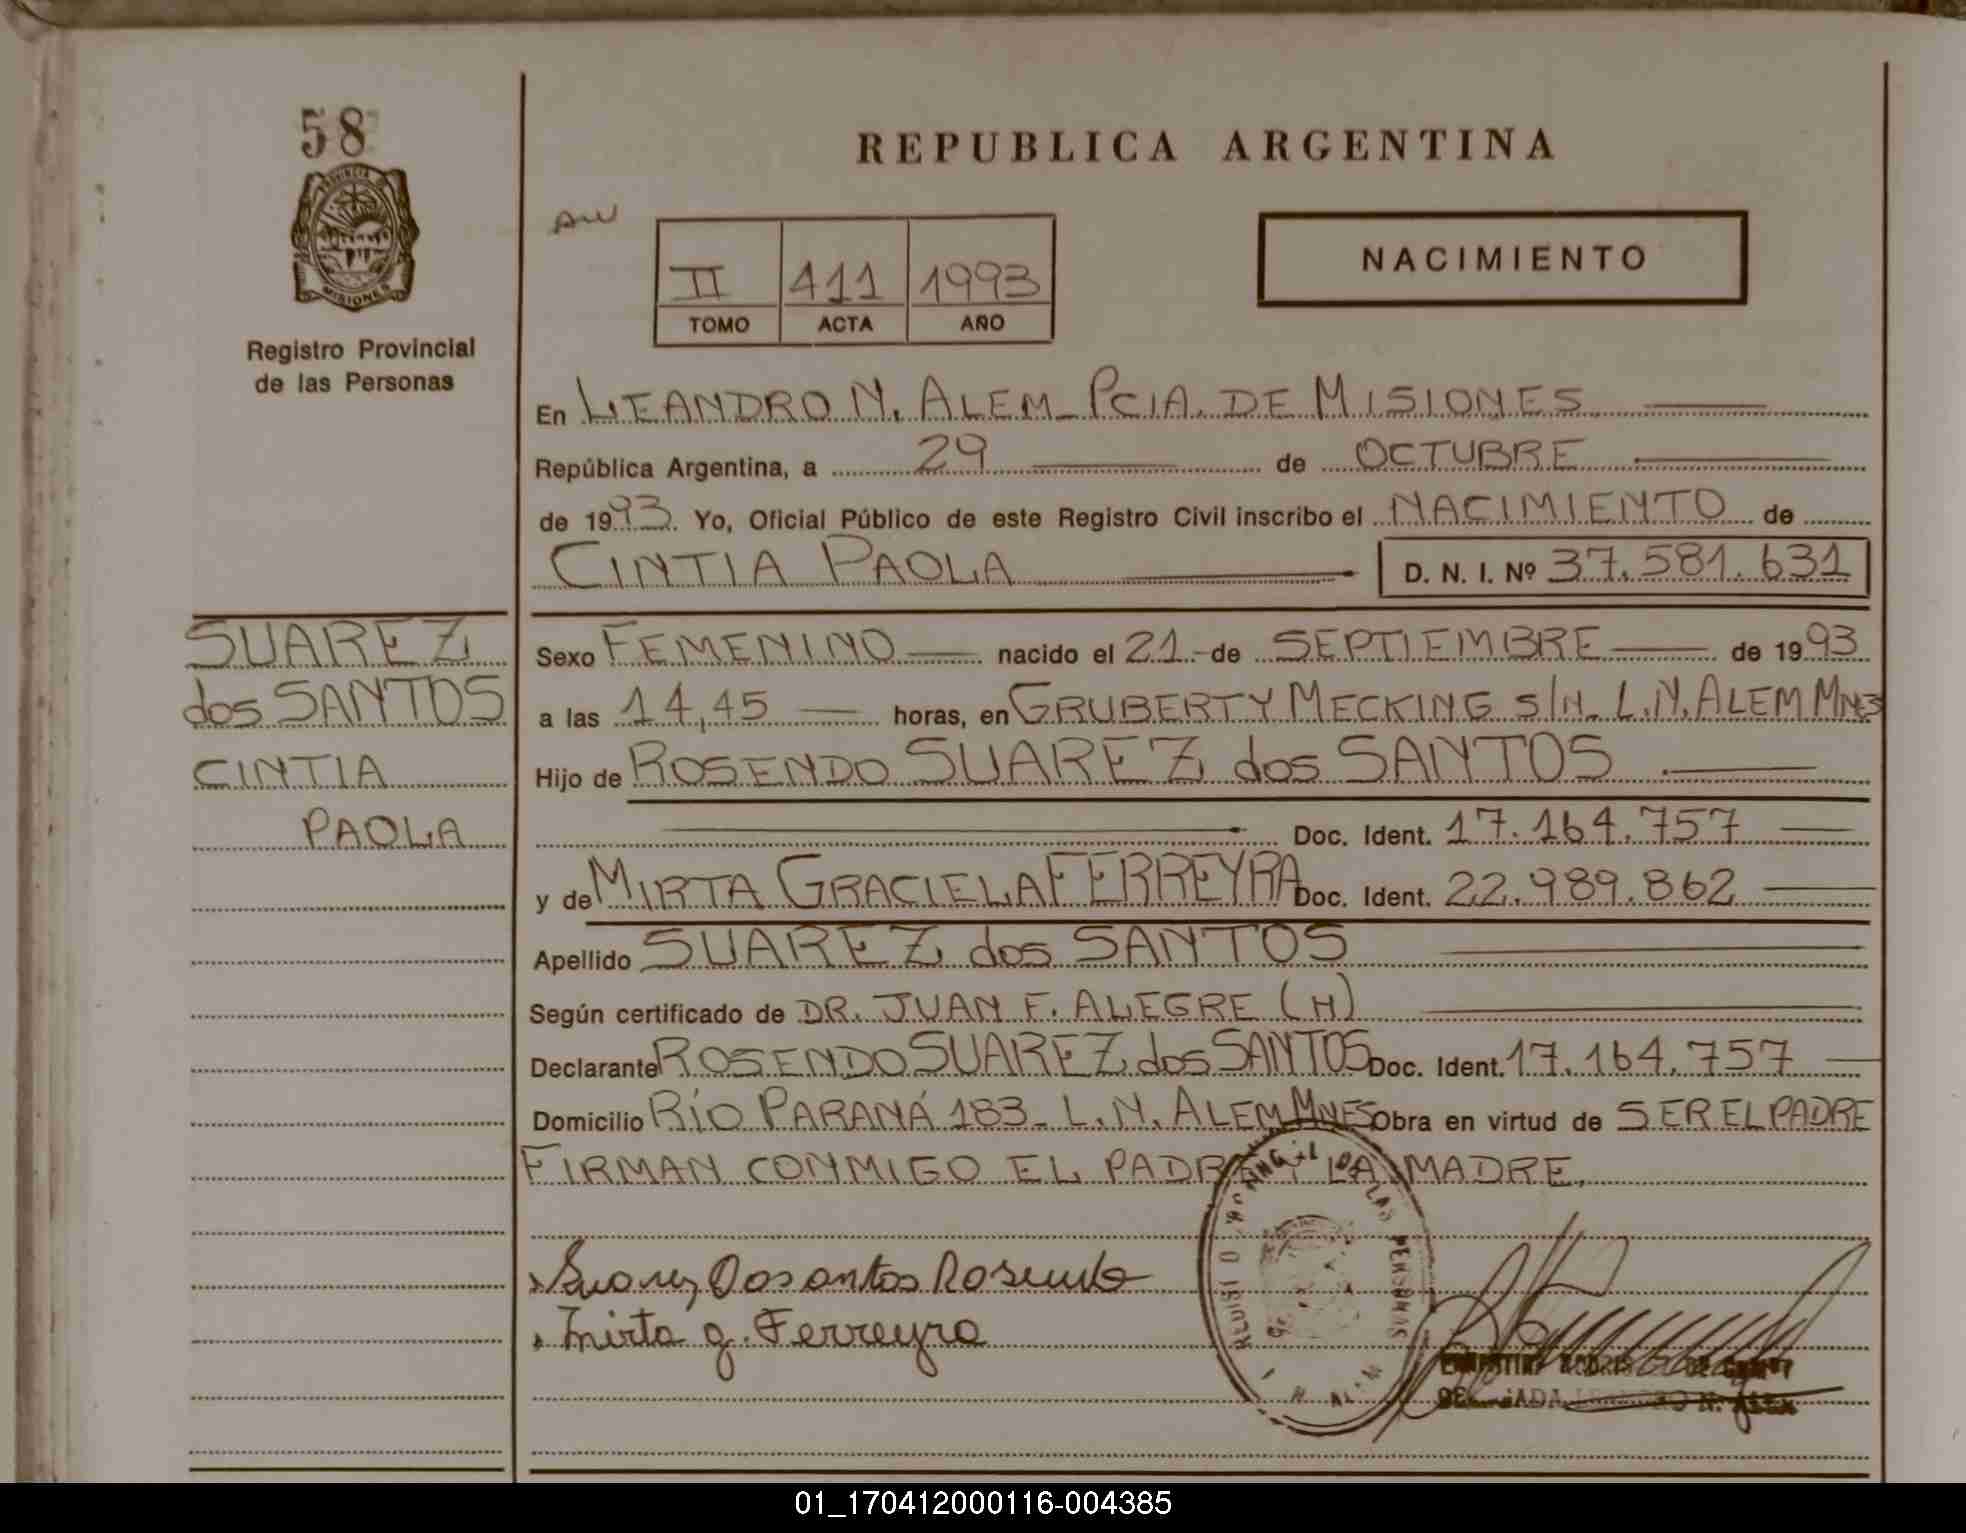 58
PROVINCIA DE
MISIONES
Registro Provincial
de las Personas
SUAREZ
dos SANTOS
CINTIA
PAOLA
REPUBLICA ARGENTINA
II 411 1993
TOMO ACTA AÑO
NACIMIENTO
En LEANDRO N. ALEM_ PCIA. DE MISIONES
República Argentina, a 29 de OCTUBRE
de 1993. Yo, Oficial Público de este Registro Civil inscribo el NACIMIENTO de
CINTIA PAOLA D. N. I. Nº 37.581.631
Sexo FEMENINO nacido el 21 de SEPTIEMBRE de 1993
a las 14,45 horas, en GRUBERT Y MECKING s/n_ L.N. ALEM MNES
Hijo de ROSENDO SUAREZ dos SANTOS
Doc. Ident. 17.164.757
y de MIRTA GRACIELA FERREYRA Doc. Ident. 22.989.862
Apellido SUAREZ dos SANTOS
Según certificado de DR. JUAN F. ALEGRE (H)
Declarante ROSENDO SUAREZ dos SANTOS Doc. Ident. 17.164.757
Domicilio RÍO PARANÁ 183_ L.N. ALEM MNES Obra en virtud de SER EL PADRE
FIRMAN CONMIGO EL PADRE Y LA MADRE.
Suarez Dosantos Rosendo
Mirta g. Ferreyra
DE LAS PERSONAS
N. ALEM
01_170412000116-004385